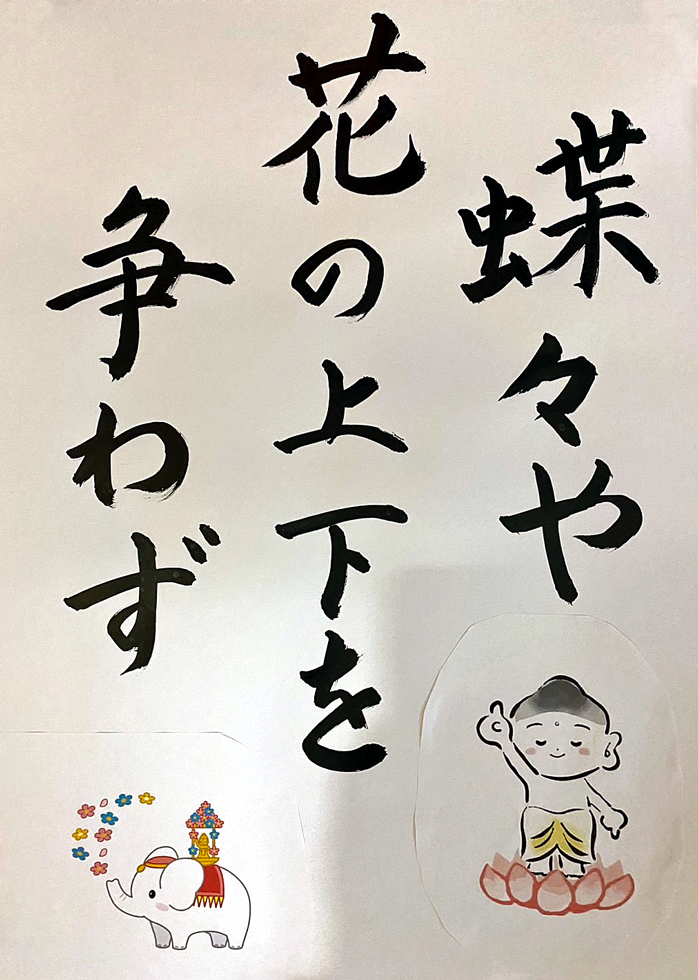 蝶々や
花の上下を
争わず